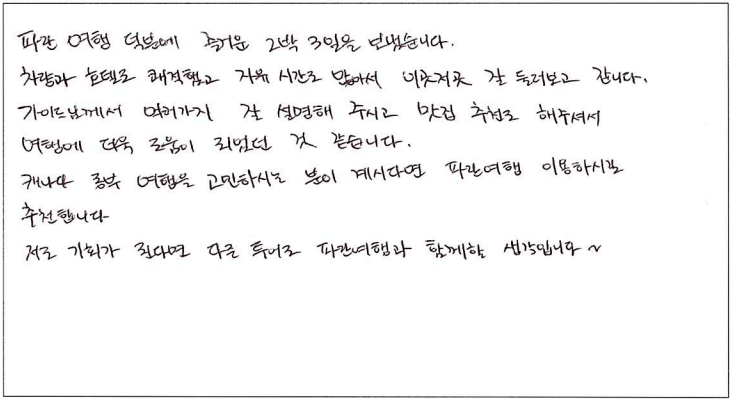 파란 여행 덕분에 즐거운 2박 3일을 보냈습니다.
차량과 호텔도 쾌적했고 자유 시간도 많아서 이곳저곳 잘 둘러보고 갑니다.
가이드님께서 여러가지 잘 설명해 주시고 맛집 추천도 해주셔서
여행에 더욱 도움이 되었던 것 같습니다.
캐나다 동부 여행을 고민하시는 분이 계시다면 파란여행 이용하시길
추천합니다
저도 기회가 된다면 다른 투어도 파란여행과 함께할 생각입니다~